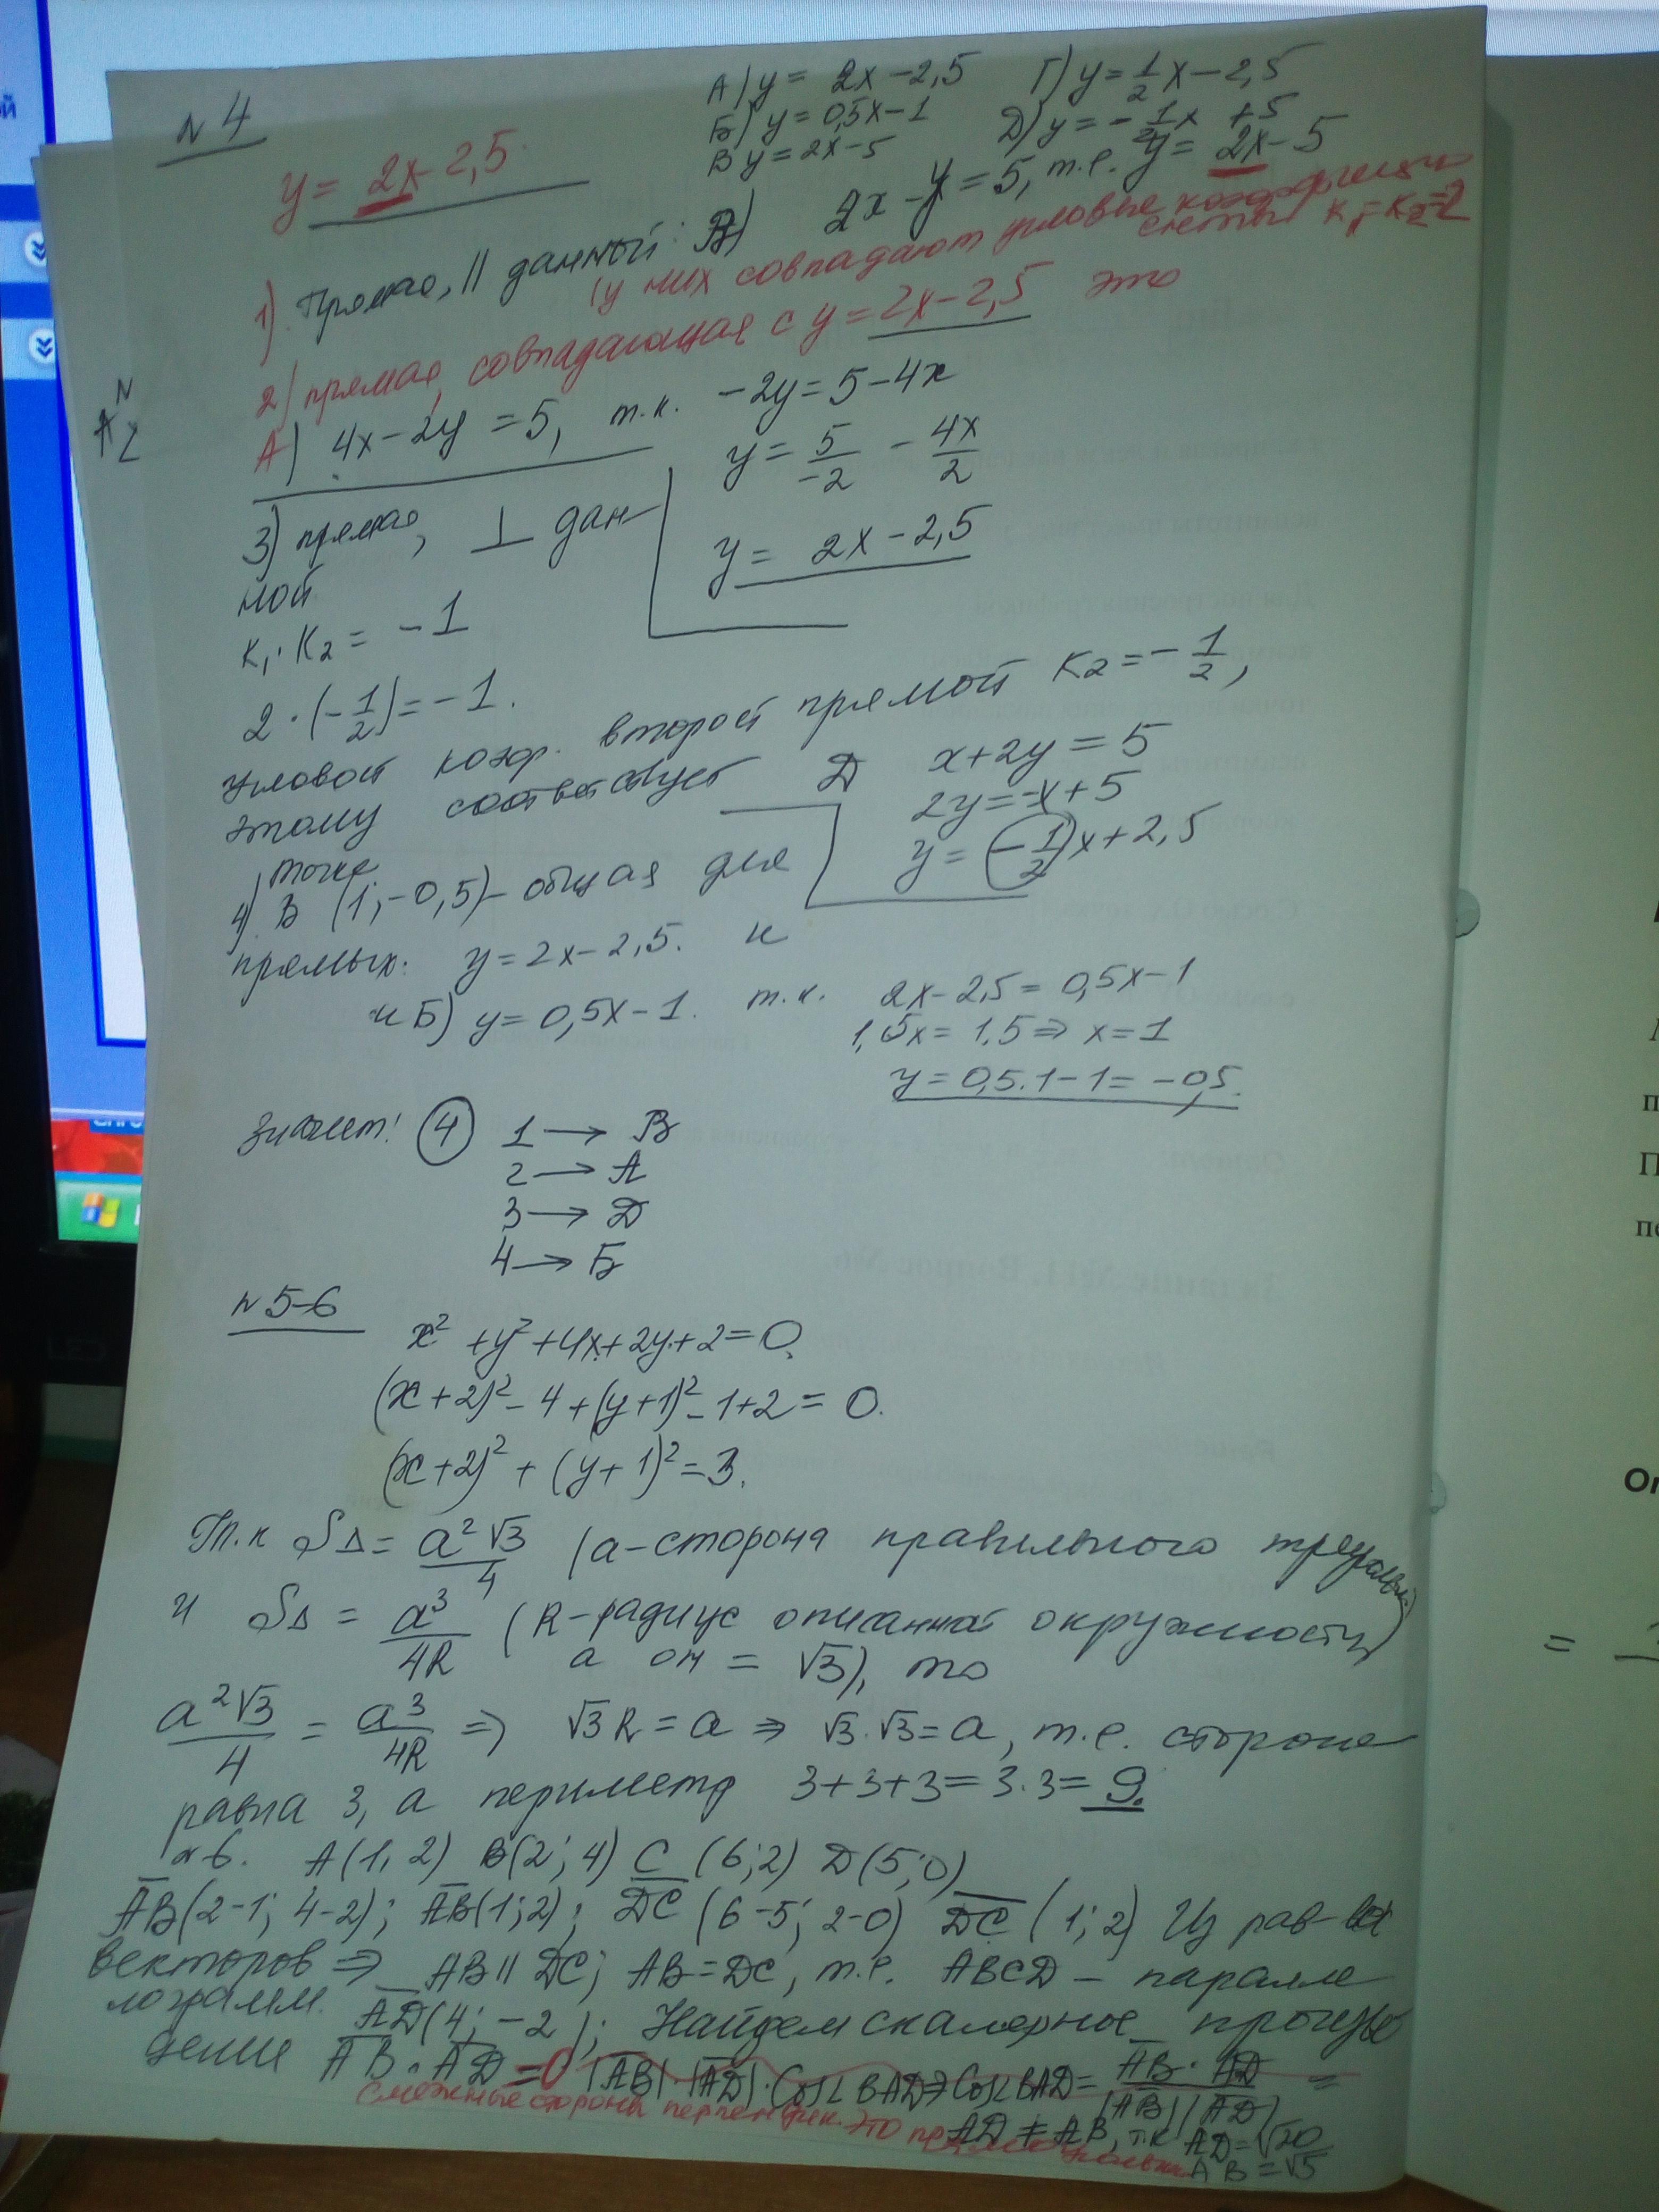 N 4
А) y = 2x - 2,5
Г) y = 1/2 x - 2,5
Б) y = 0,5x - 1
Д) y = - 1/2 x + 5
В y = 2x - 5
y = 2x - 2,5
1). Прямая, || данной: В) 2x - y = 5, т.е. y = 2x - 5
(у них совпадают угловые коэффици
енты K₁ = K₂ = 2
2) прямая, совпадающая с y = 2x - 2,5 это
А) 4x - 2y = 5, т.к. -2y = 5 - 4x
y = 5/-2 - 4x/2
y = 2x - 2,5
3) прямая, ⊥ дан-
ной
K₁·K₂ = -1
2·(-1/2) = -1.
угловой коэф. второй прямой K₂ = - 1/2,
этому соответствует Д x + 2y = 5
2y = -x + 5
y = (-1/2)x + 2,5
4) В точке (1; -0,5) - общая для
прямых: y = 2x - 2,5. и
и Б) y = 0,5x - 1. т.к. 2x - 2,5 = 0,5x - 1
1,5x = 1,5 ⇒ x = 1
y = 0,5·1 - 1 = -0,5.
Значит! 4 1 → В
2 → А
3 → Д
4 → Б
N 5-6
x² + y² + 4x + 2y + 2 = 0.
(x + 2)² - 4 + (y + 1)² - 1 + 2 = 0.
(x + 2)² + (y + 1)² = 3.
Т.к S∆ = a²√3/4 (a - сторона правильного треугольн)
и S∆ = a³/4R (R - радиус описанной окружности)
а он = √3), то
a²√3/4 = a³/4R ⇒ √3 R = a ⇒ √3·√3 = a, т.е. сторона
равна 3, а периметр 3+3+3 = 3·3 = 9.
N 6. A(1, 2) B(2; 4) C (6; 2) D(5; 0)
AB(2-1; 4-2); AB(1; 2); DC (6-5; 2-0) DC (1; 2) Из рав-ва
векторов ⇒ AB || DC; AB = DC, т.е. ABCD - паралле
лограмм. AD(4; -2); Найдем скалярное произве
дение AB · AD = 0 |AB|·|AD|·Cos∠BAD ⇒ Cos∠BAD = AB · AD / |AB||AD| =
смежные стороны перпендик. это прямоугольник
AD ≠ AB, т.к AD = √20
AB = √5